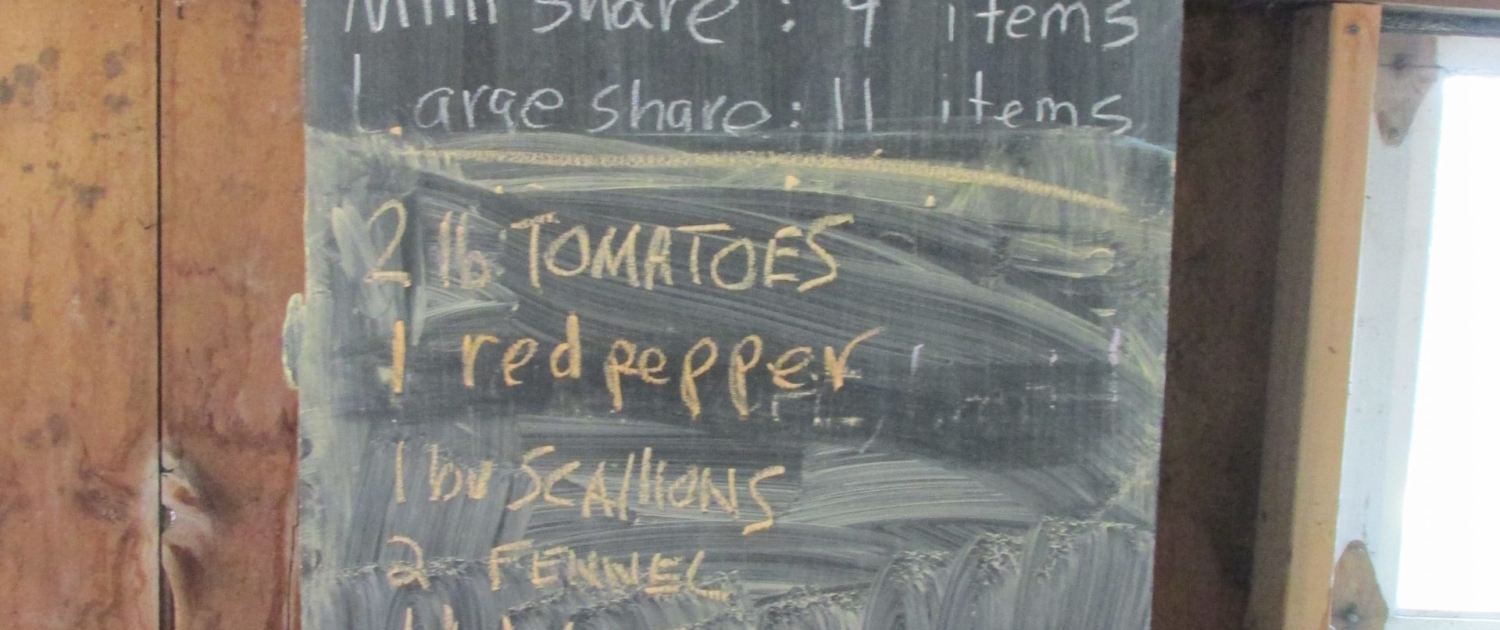 Mini share: 9 items
Large share: 11 items
2 lb TOMATOES
1 red pepper
1 bu SCAllIONS
2 FENNEL